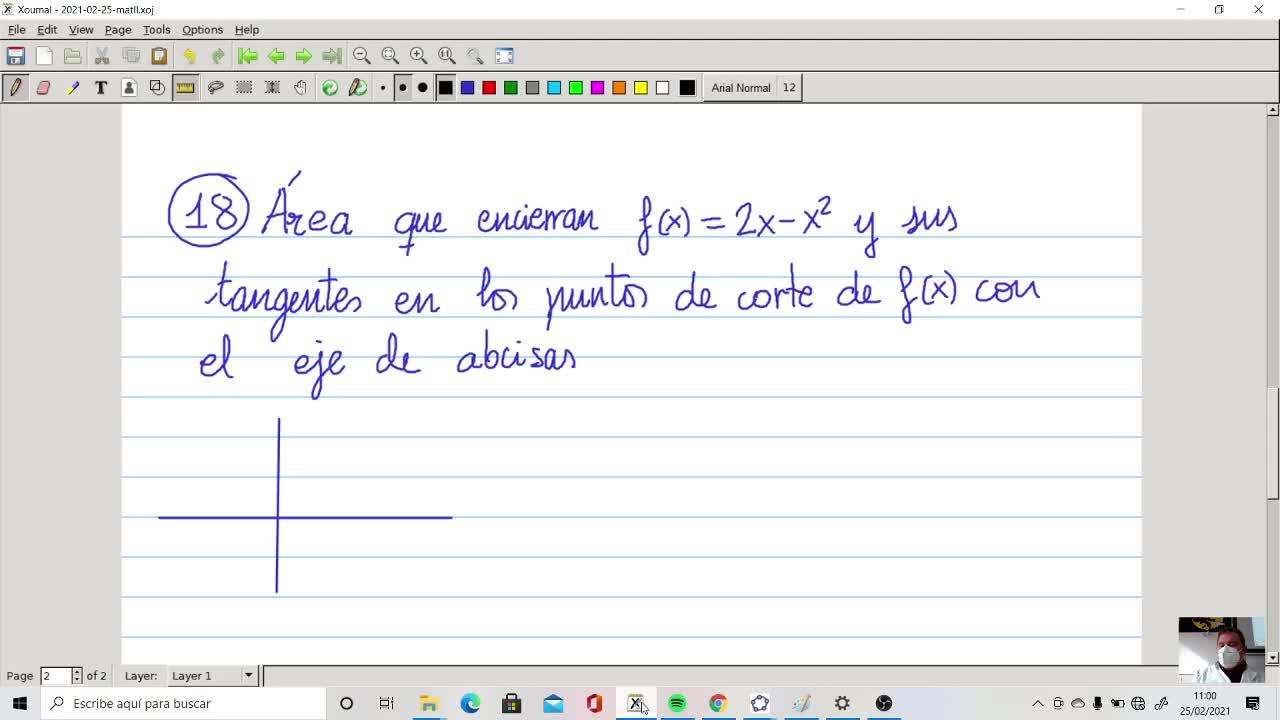 Xournal - 2021-02-25-matII.xoj
File Edit View Page Tools Options Help
Arial Normal 12
18 Área que encierran f(x) = 2x - x² y sus
tangentes en los puntos de corte de f(x) con
el eje de abcisas
Page 2 of 2 Layer: Layer 1
Escribe aquí para buscar
11:00
25/02/2021